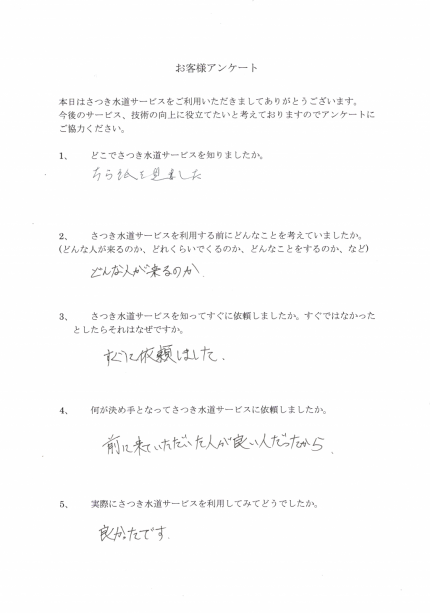 お客様アンケート
本日はさつき水道サービスをご利用いただきましてありがとうございます。
今後のサービス、技術の向上に役立てたいと考えておりますのでアンケートに
ご協力ください。
1、 どこでさつき水道サービスを知りましたか。
ちら紙を見ました
2、 さつき水道サービスを利用する前にどんなことを考えていましたか。
(どんな人が来るのか、どれくらいでくるのか、どんなことをするのか、など)
どんな人が来るのか.
3、 さつき水道サービスを知ってすぐに依頼しましたか。すぐではなかった
としたらそれはなぜですか。
すぐに依頼しました.
4、 何が決め手となってさつき水道サービスに依頼しましたか。
前に来ていただいた人が良い人だったから.
5、 実際にさつき水道サービスを利用してみてどうでしたか。
良かったです.